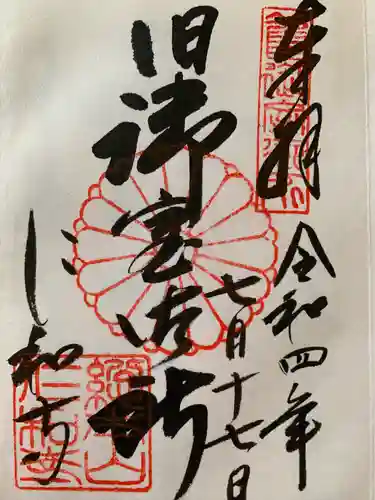 奉拝
令和四年
七月十七日
旧御室御所
仁和寺